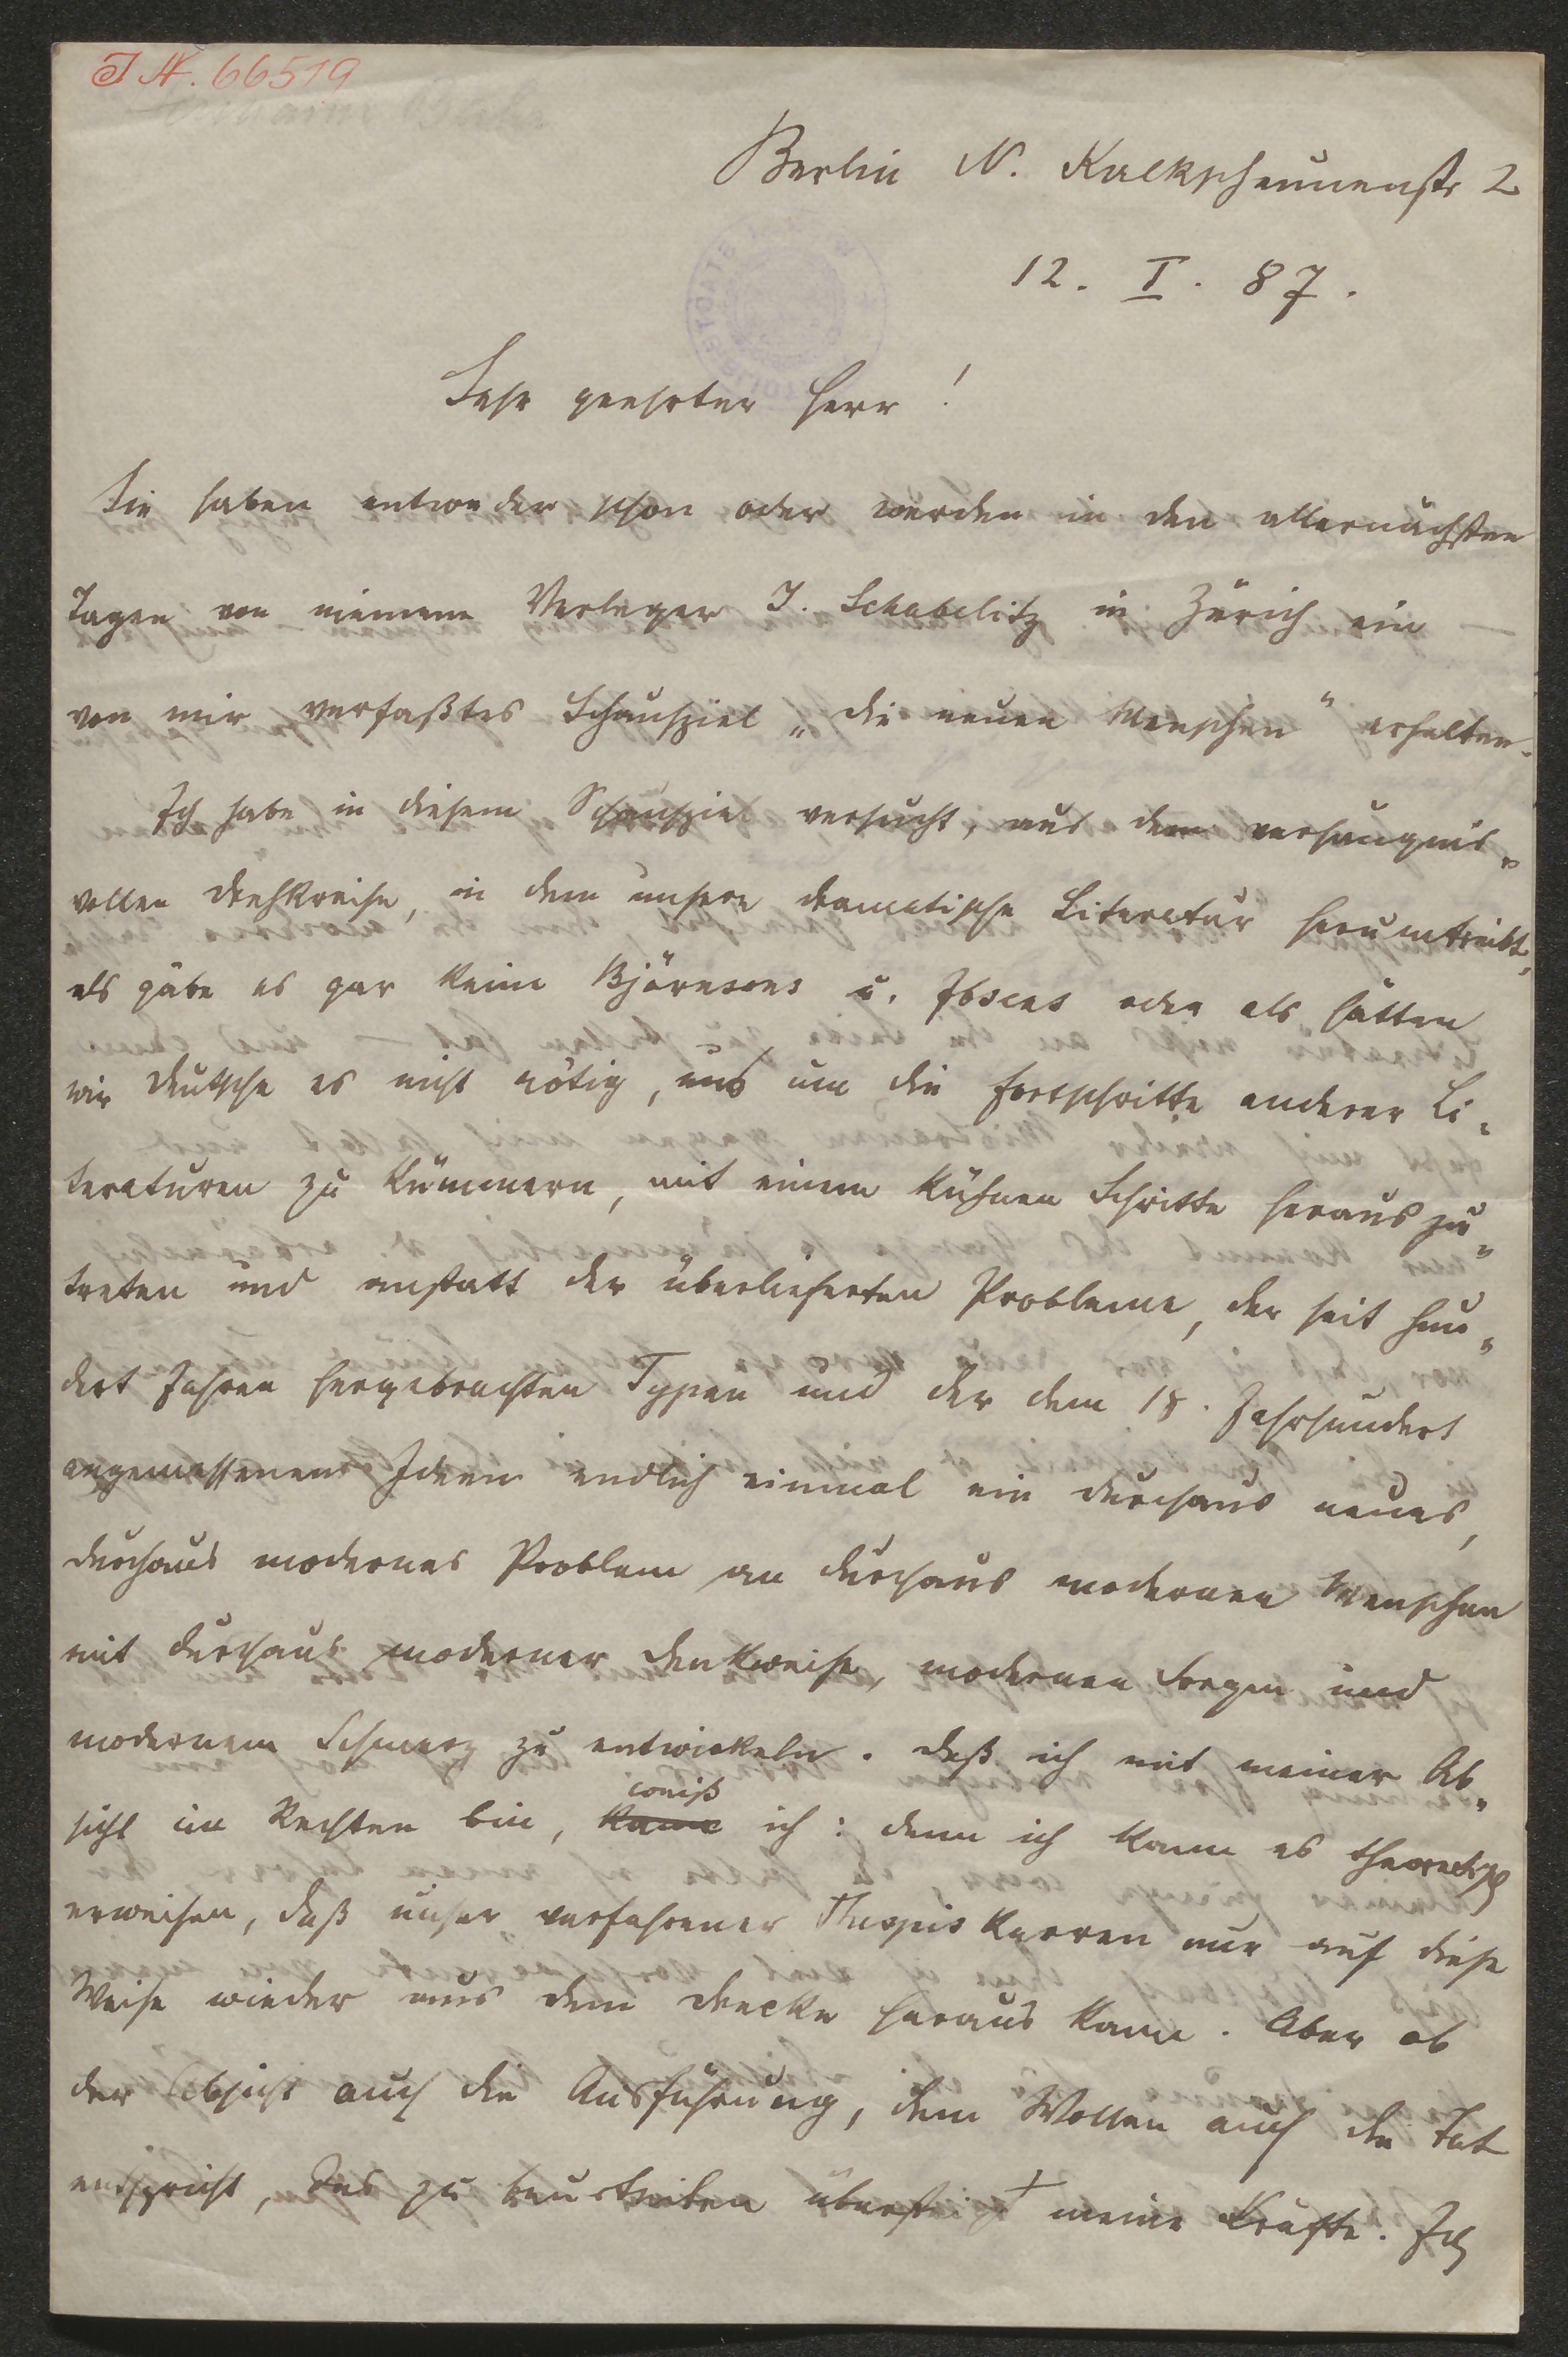 J.N. 66519
Berlin N. Kalkscheunenstr 2
12. I. 87.
Sehr geehrter Herr!
Sie haben entweder schon oder werden in den allernächsten
Tagen von meinem Verleger J. Schabelitz in Zürich ein
von mir verfaßtes Schauspiel „die neuen Menschen" erhalten.
Ich habe in diesem Schauspiel versucht, aus dem verhängnis„
vollen Drehkreise, in dem unsere dramatische Literatur herumtreibt,
als gäbe es gar keine Björnsons u. Ibsens oder als hätten
wir Deutsche es nicht nötig, uns um die Fortschritte anderer Li„
teraturen zu kümmern, mit einem kühnen Schritte heraus zu„
treten und anstatt der überlieferten Probleme, der seit hun„
dert Jahren hergebrachten Typen und der dem 18. Jahrhundert
angemessenen Ideen endlich einmal ein durchaus neues,
durchaus modernes Problem an durchaus modernen Menschen
mit durchaus moderner Denkweise, modernen Sorgen und
modernem Schmerz zu entwickeln. Daß ich mit meiner Ab„
weiß
sicht im Rechten bin, kann ich: denn ich kann es theoretisch
erweisen, daß unser verfahrener Thespiskarren nur auf diese
Weise wieder aus dem Drecke heraus kann. Aber ob
der Absicht auch die Ausführung, dem Wollen auch die Tat
entspricht, das zu beurtheilen übersteigt meine Kräfte. Ich